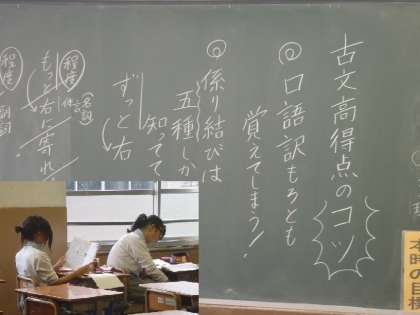 古文高得点のコツ
◎口語訳もろとも
覚えてしまう!
◎係り結びは
五種しか
知ってて
ずっと右
程度(名詞)
もっと右に寄れ!
程度
副詞
本時の目標